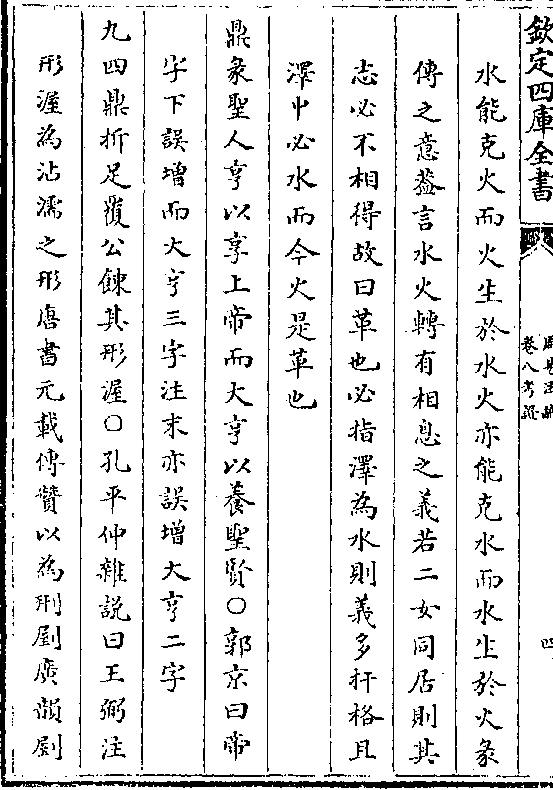 欽定四庫全書
卷八考證
四
水能克火而火生於水火亦能克水而水生於火彖
傳之意葢言水火轉有相息之義若二女同居則其
志必不相得故曰革也必指澤為水則義多扞格且
澤中必水而今火是革也
鼎彖聖人亨以享上帝而大亨以養聖賢○郭京曰帝
字下誤增而大亨三字注末亦誤增大亨二字
九四鼎折足覆公餗其形渥○孔平仲雜説曰王弼注
形渥為沾濡之形唐書元載傳贊以為刑劇廣韻劇